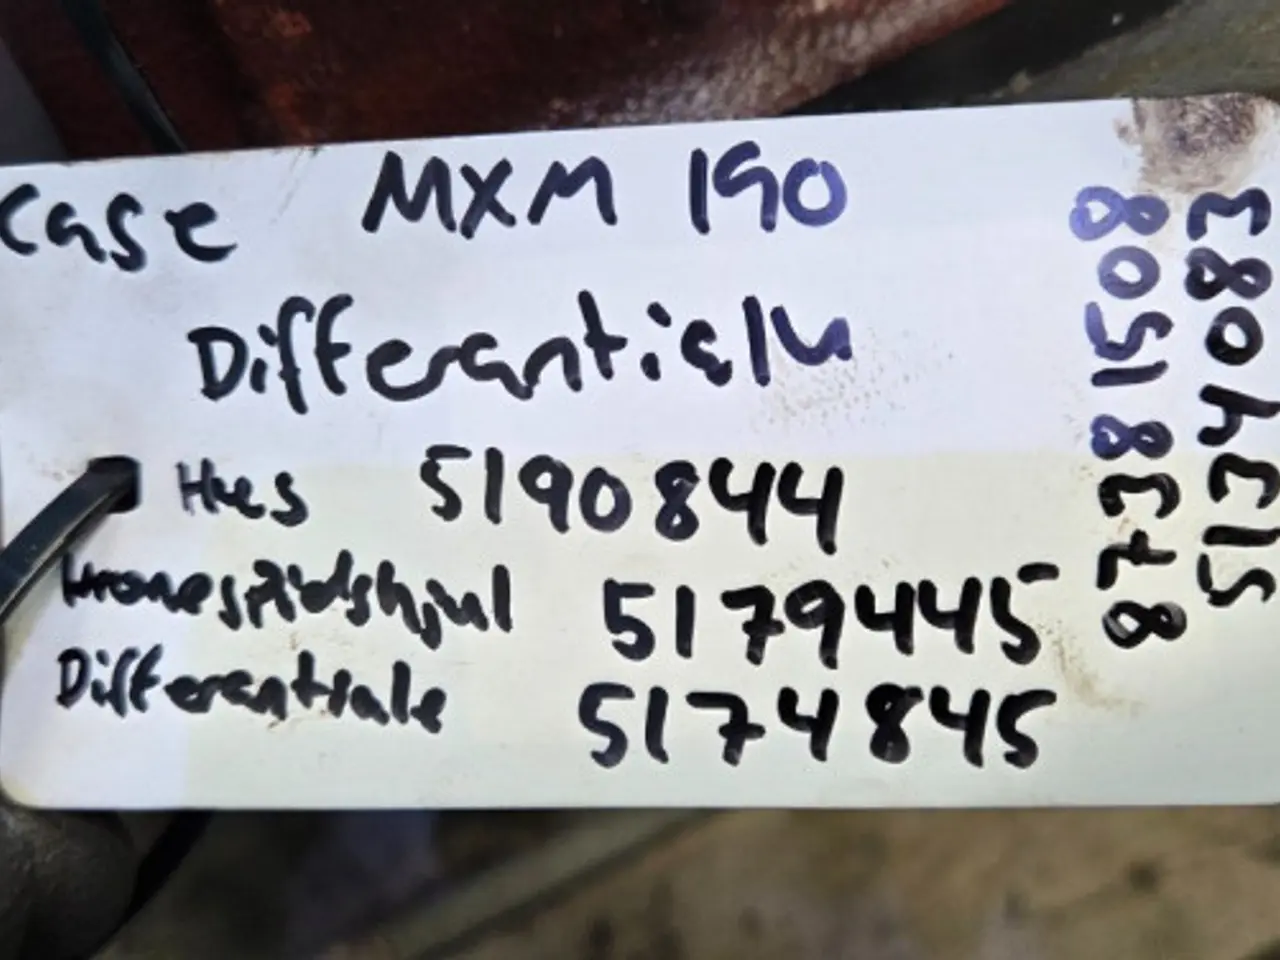 Case MXM 190
Differantiale
Hus 5190844
Kronespidshjul 5179445
Differentiale 5174845
87381508
5134083